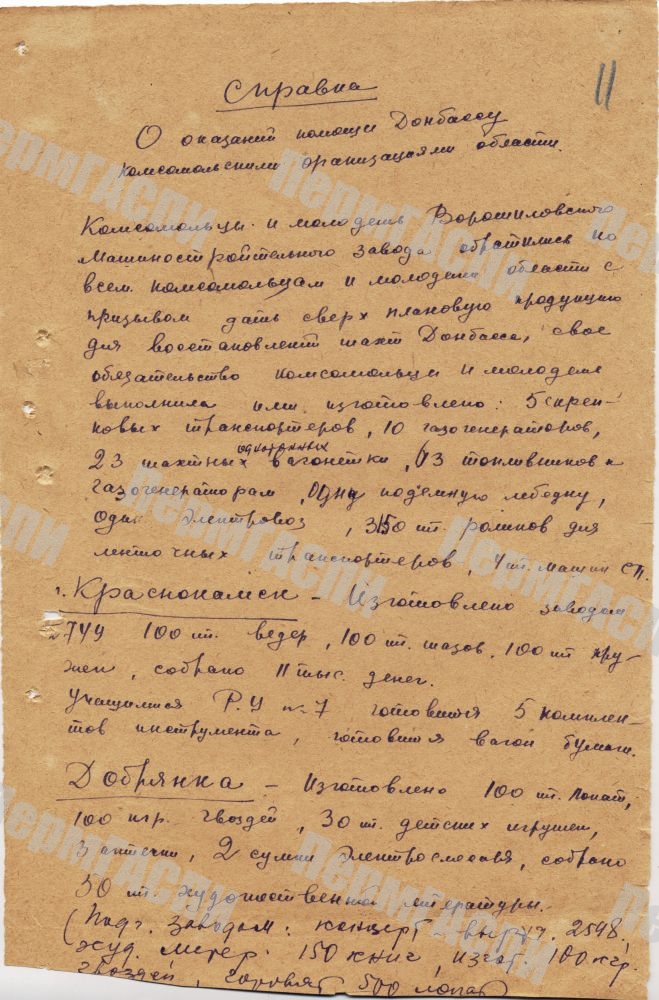 11
Справка
О оказании помощи Донбассу
комсомольскими организациями области.
Комсомольцы и молодежь Ворошиловского
Машиностройтельного завода обратились ко
всем комсомольцам и молодежи области с
призывом дать сверх плановую продукцию
для восстановлений шахт Донбасса, свое
обязательство комсомольцы и молодежь
выполнила ими изготовлено: 5 скреп-
ковых транспортеров, 10 газогенераторов,
однотонных
23 шахтных вагонетки, 13 топливников к
газогенераторам, одну подъемную лебедку,
один электровоз, 3150 шт. роликов для
ленточных транспортеров, 4 шт. машин СП.
г. Краснокамск – Изготовлено заводом
№ 749 100 шт. ведер, 100 шт. тазов, 100 шт кру-
жек, собрано 11 тыс. денег.
Учащимися Р.У № 7 готовится 5 комплек-
тов инструмента, готовится вагон бумаги.
Добрянка – Изготовлено 100 шт. лопат,
100 кгр. гвоздей, 30 шт. детских игрушек,
3 аптечки, 2 сумки электрослесаря, собрано
50 шт. художественной литературы.
(Подг. заводом: концерт – выруч. 2548,
худ. литер. 150 книг, изгот. 100 кгр.
гвоздей, готовят 500 лопат
пермГАСПИ